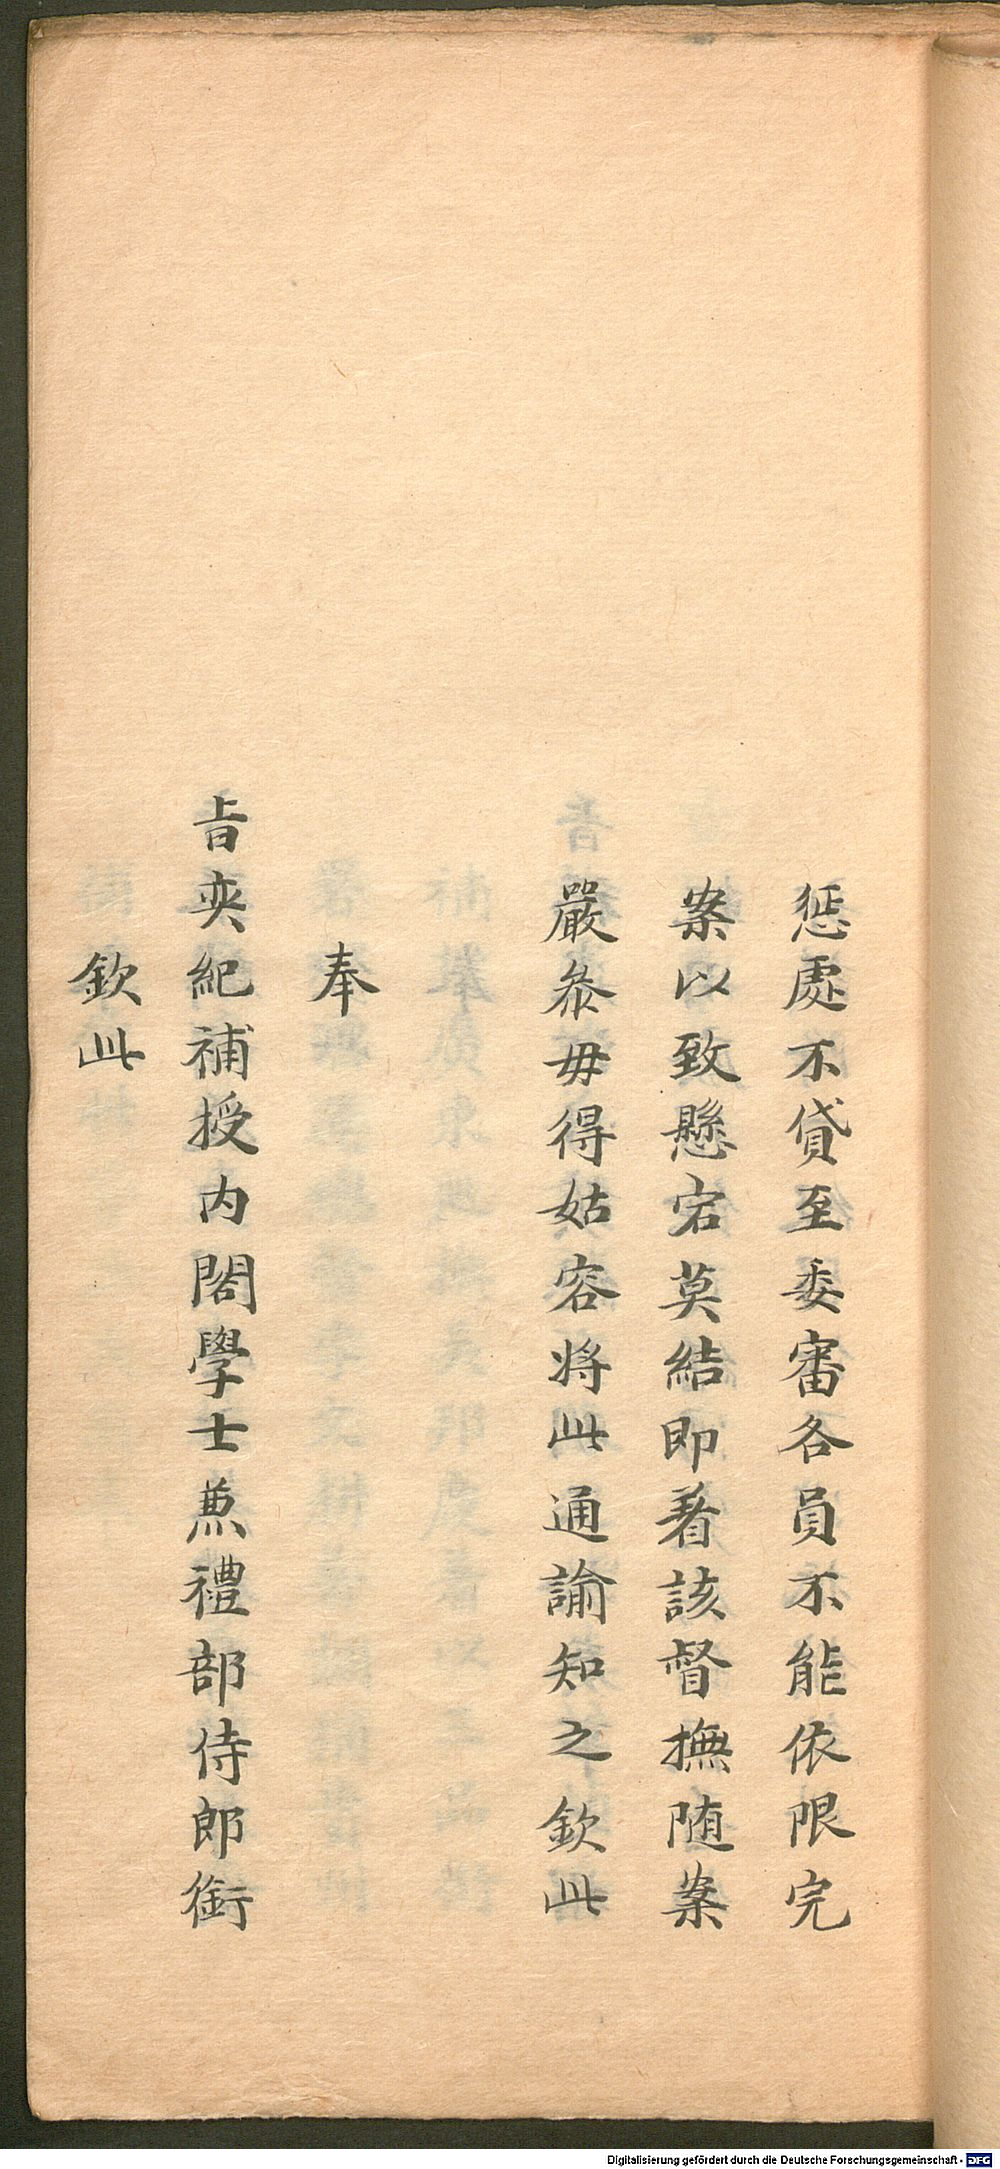 懲處不貸至委審各員不能依限完
案以致懸宕莫結即着該督撫随案
嚴叅毋得姑容將此通諭知之欽此
奉
旨奕紀補授内閣學士兼禮部侍郎銜
欽此
Digitalisierung gefördert durch die Deutsche Forschungsgemeinschaft - DFG